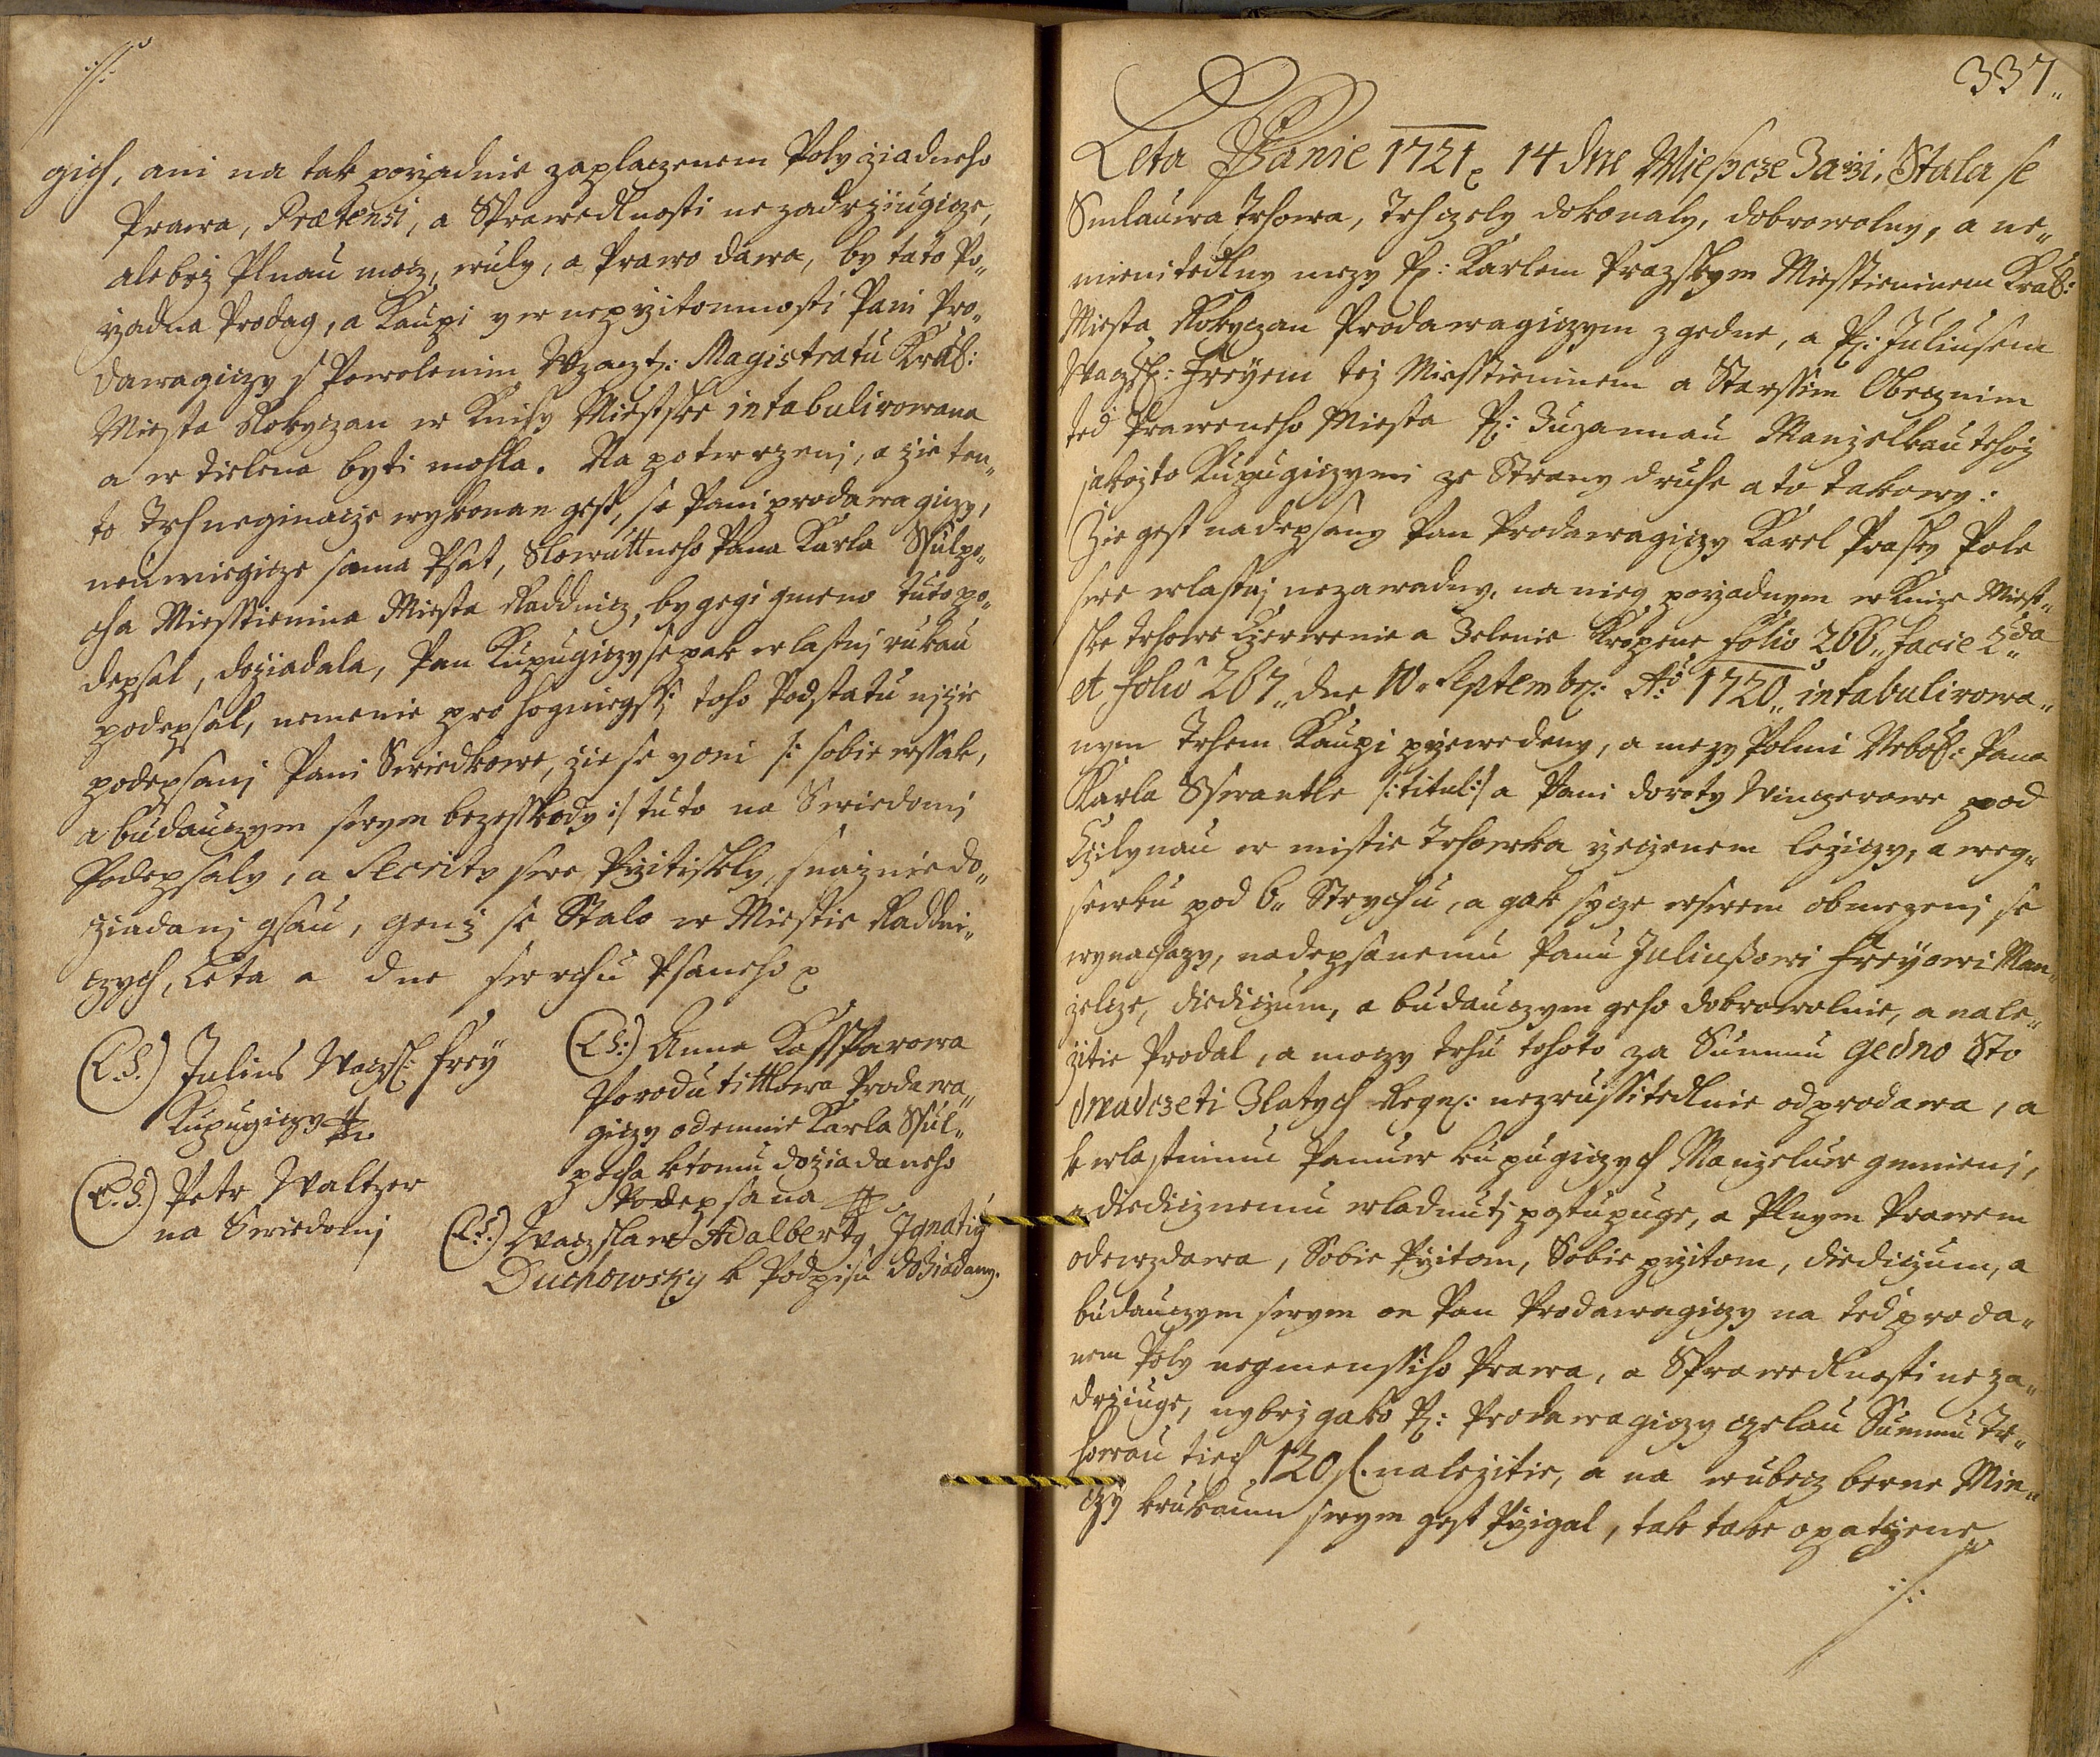 :/:
gich, ani na tak pořadnie zaplaczenem Poly žiadneho
Prawa, Prætensi, a Sprawedlnosti nezadržiugicze,
alebrž Plnau mocz, wuly, a Prawo dawa, by tato Po„
řadna Prodag, a Kaupi y w nepřitomnosti Pani Pro„
dawagiczy s Powolenim Wzacz: Magistratu Kral:
Miesta Rokyczan w Knihy Miestske intabulirowana
a w tielena byti mohla. Na potwrzenj, a žie ten„
to Trh neginacze wykonan gest, se Pani prodawagiczy,
neumiegicze sama Psat, Slowuttneho Pana Karla Sfulpo„
cha Miesstienina Miesta Raddnicz, by gegi gmeno tuto po„
depsal, dožiadala, Pan Kupugiczy se pak wlastnj rukau
podepsal, nemenie pro hogniegssj toho Podstatu nižie
podepsanj Pani Swiedkowe, žie se yoni /: sobie wssak,
a budauczym swym bezesskody :/ tuto na Swiedomj
Podepsaly, a Secrity swe Přitiskly, snažnie do„
žiadanj gsau, genž se Stalo w Miestie Raddni„
czych, Leta a dne swrchu Psaneho
(L.S.) Julius Waczl: Frey
Kupugiczy
(L.S.) Petr Waltzer
na Swiedomj
(L.S.) Anna Kassparowa
Porodu tittlowa Prodawa„
giczy odemnie Karla Sful„
pocha ktomu dožiadaneho
Podepsana
(L.S.) Waczslaw Adalberty Ignatiy
Duchowsky k Podpisu dožiadany.
337„
Leta Panie 1721 14 dne Miesycze Zaři, Stala se
Smlauwa trhowa, Trh czely dokonaly, dobrowolny, a ne„
mienitedlny mezy P: Karlem Prazskym Miesstieninem Kral:
Miesta Rokyczan Prodawagiczym z gedne, a P: Juliusem
Waczl: Freyem tež Miesstieninem a Starssim Obecznim
ted Praweneho Miesta P: Zuzannau Manželkau tehož
jakožto Kupugiczymi ze Strany druhe a to takowy:
Žie gest nadepsany Pan Prodawagiczy Karel Prasky Pole
swe wlastnj nezawadny, na nieg pořadnym w Knize Miest„
ske trhowe Czerwenie a Zelenie Kropene folio 266„ facie 2da
et folio 267„ dne 10. Septembr: Ao 1720„ intabulirowa„
nym Trhem Kaupi přiwedeny, a mezy Polmi Urboz: Pana
Karla Sswantle /: titul :/ a Pani doroty Winczerowe pod
Czilynau w mistie Trhowka řeczenem ležiczy, a weg„
sewku pod 6„ Strychu, a gak sycze wssewem obmezenj se
wynachazy, nadepsanemu Panu Juliußowi Freyowi Man„
želcze, diediczum, a budauczym geho dobrowolnie, a nale„
žitie Prodal, a moczy trhu tohoto za Summu gedno Sto
dwadczeti Zlatych Regn: nezrussitedlnie odprodawa, a
k wlastnimu Panuw kupugiczych Manželuw gmienj,
a diedicznemu wladnutj postupuge, a Plnym Prawem
odewzdawa, Sobie Přitom, Sobie přitom, diediczum, a
budauczym swym on Pan Prodawagiczy na ted proda„
nem Poly negmenssiho Prawa, a Sprawedlnosti neza„
držiuge, nybrž gako P: Prodawagiczy czelau Summu Tr„
howau tiech 120 f. naležitie, a na wubecz berne Min„
czy krukaum swym gest Přigal, tak take opatřene
:/: